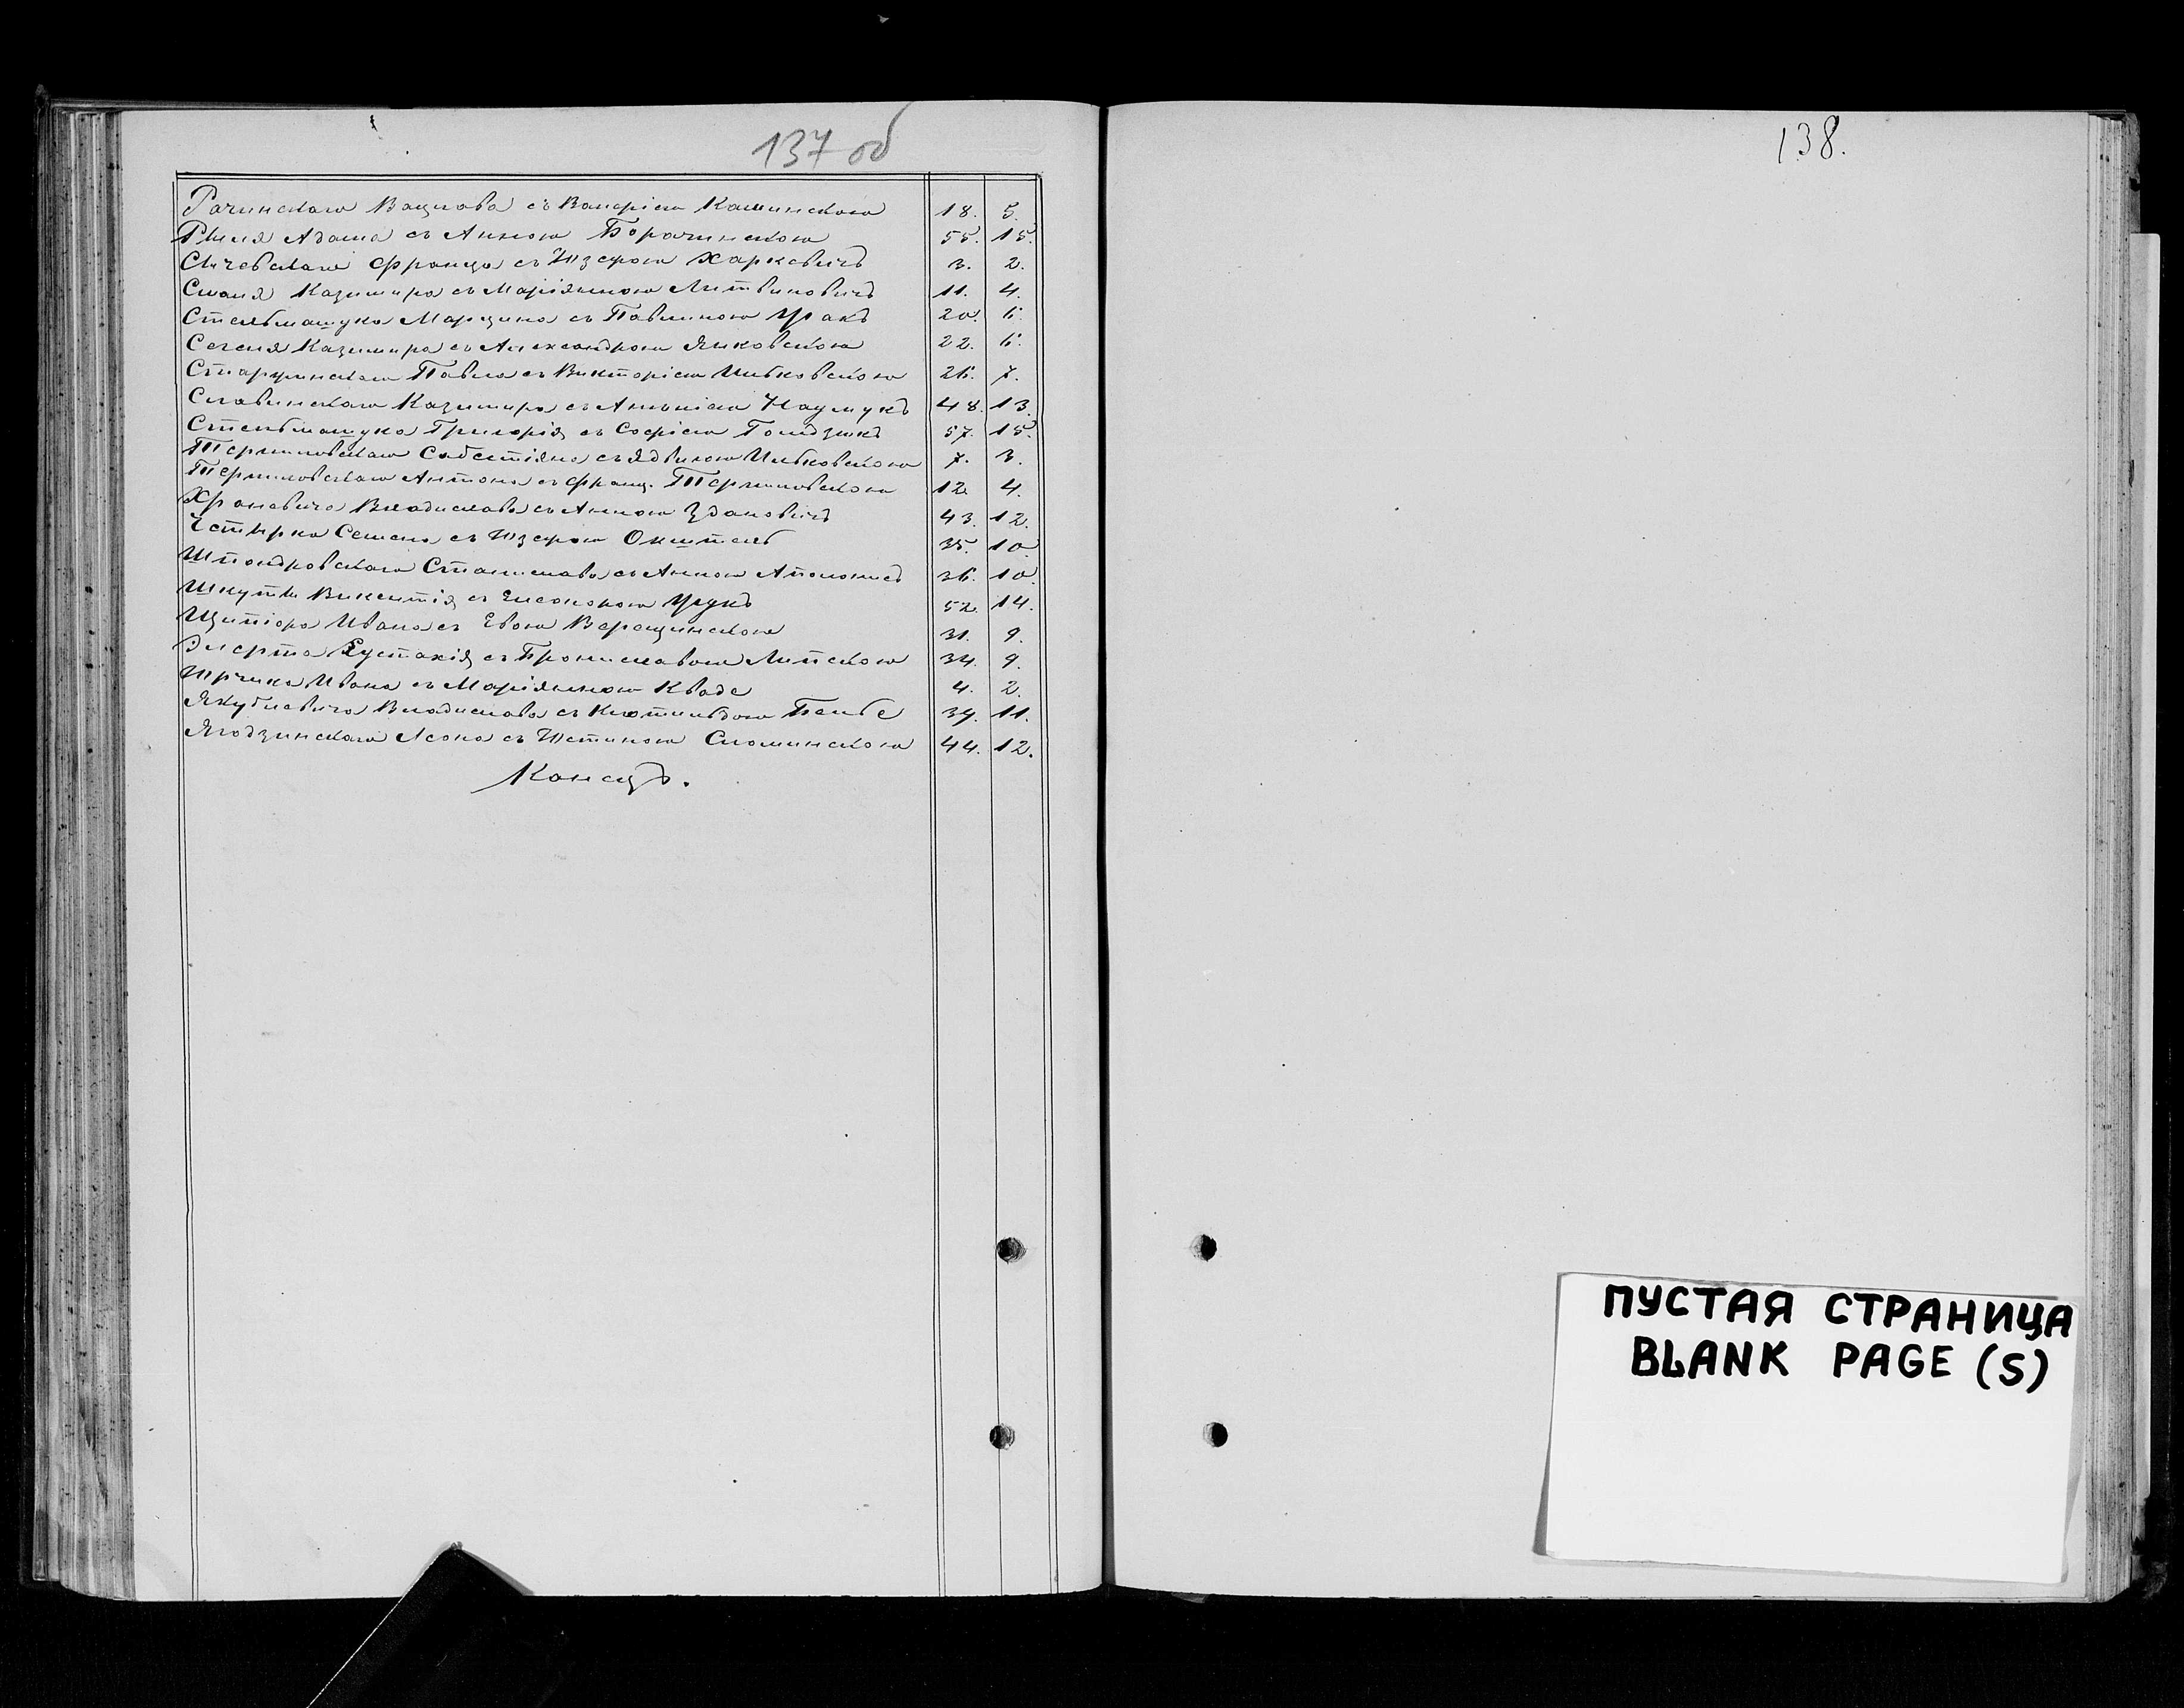 137 об
138.
Рачинскаго Вацлава съ Валеріею Каминскою 18. 5.
Рыля Адама съ Анною Борачинскою 55. 15.
Сичевскаго Франца съ Юзефою Харкевичъ 3. 2.
Смаля Казимира съ Маріянною Литвиновичъ 11. 4.
Стельмащука Марцина съ Павлиною Уракъ 20. 6.
Сегеня Казимира съ Александрою Янковскою 22. 6.
Старжинскаго Павла съ Викторіею Ивковскою 26. 7.
Славинскаго Казимира съ Антоніею Наумукъ 48. 13.
Стельмащука Григорія съ Софіею Голидзюкъ 57. 15.
Терликовскаго Сабестіяна съ Ядвигою Ивковскою 7. 3.
Терликовскаго Антона съ Франц. Терликовскою 12. 4.
Храневича Владислава съ Анною Здановичъ 43. 12.
Четырко Семена съ Юзефою Окштель 35. 10.
Шпондровскаго Станислава съ Анною 36. 10.
Шкуты Викентія съ Элеонорою 52. 14.
Щипіора Ивана съ Евою Верещинскою 31. 9.
Элерта Еустахія съ Брониславою Липскою 34. 9.
Юрчика Ивана съ Маріянною Кваде 4. 2.
Якубчевича Владислава съ Клотильдою Бельбе 39. 11.
Ягодзинскаго Леона съ Юстиною Сломинскою 44. 12.
Конецъ.
ПУСТАЯ СТРАНИЦА
BLANK PAGE (S)